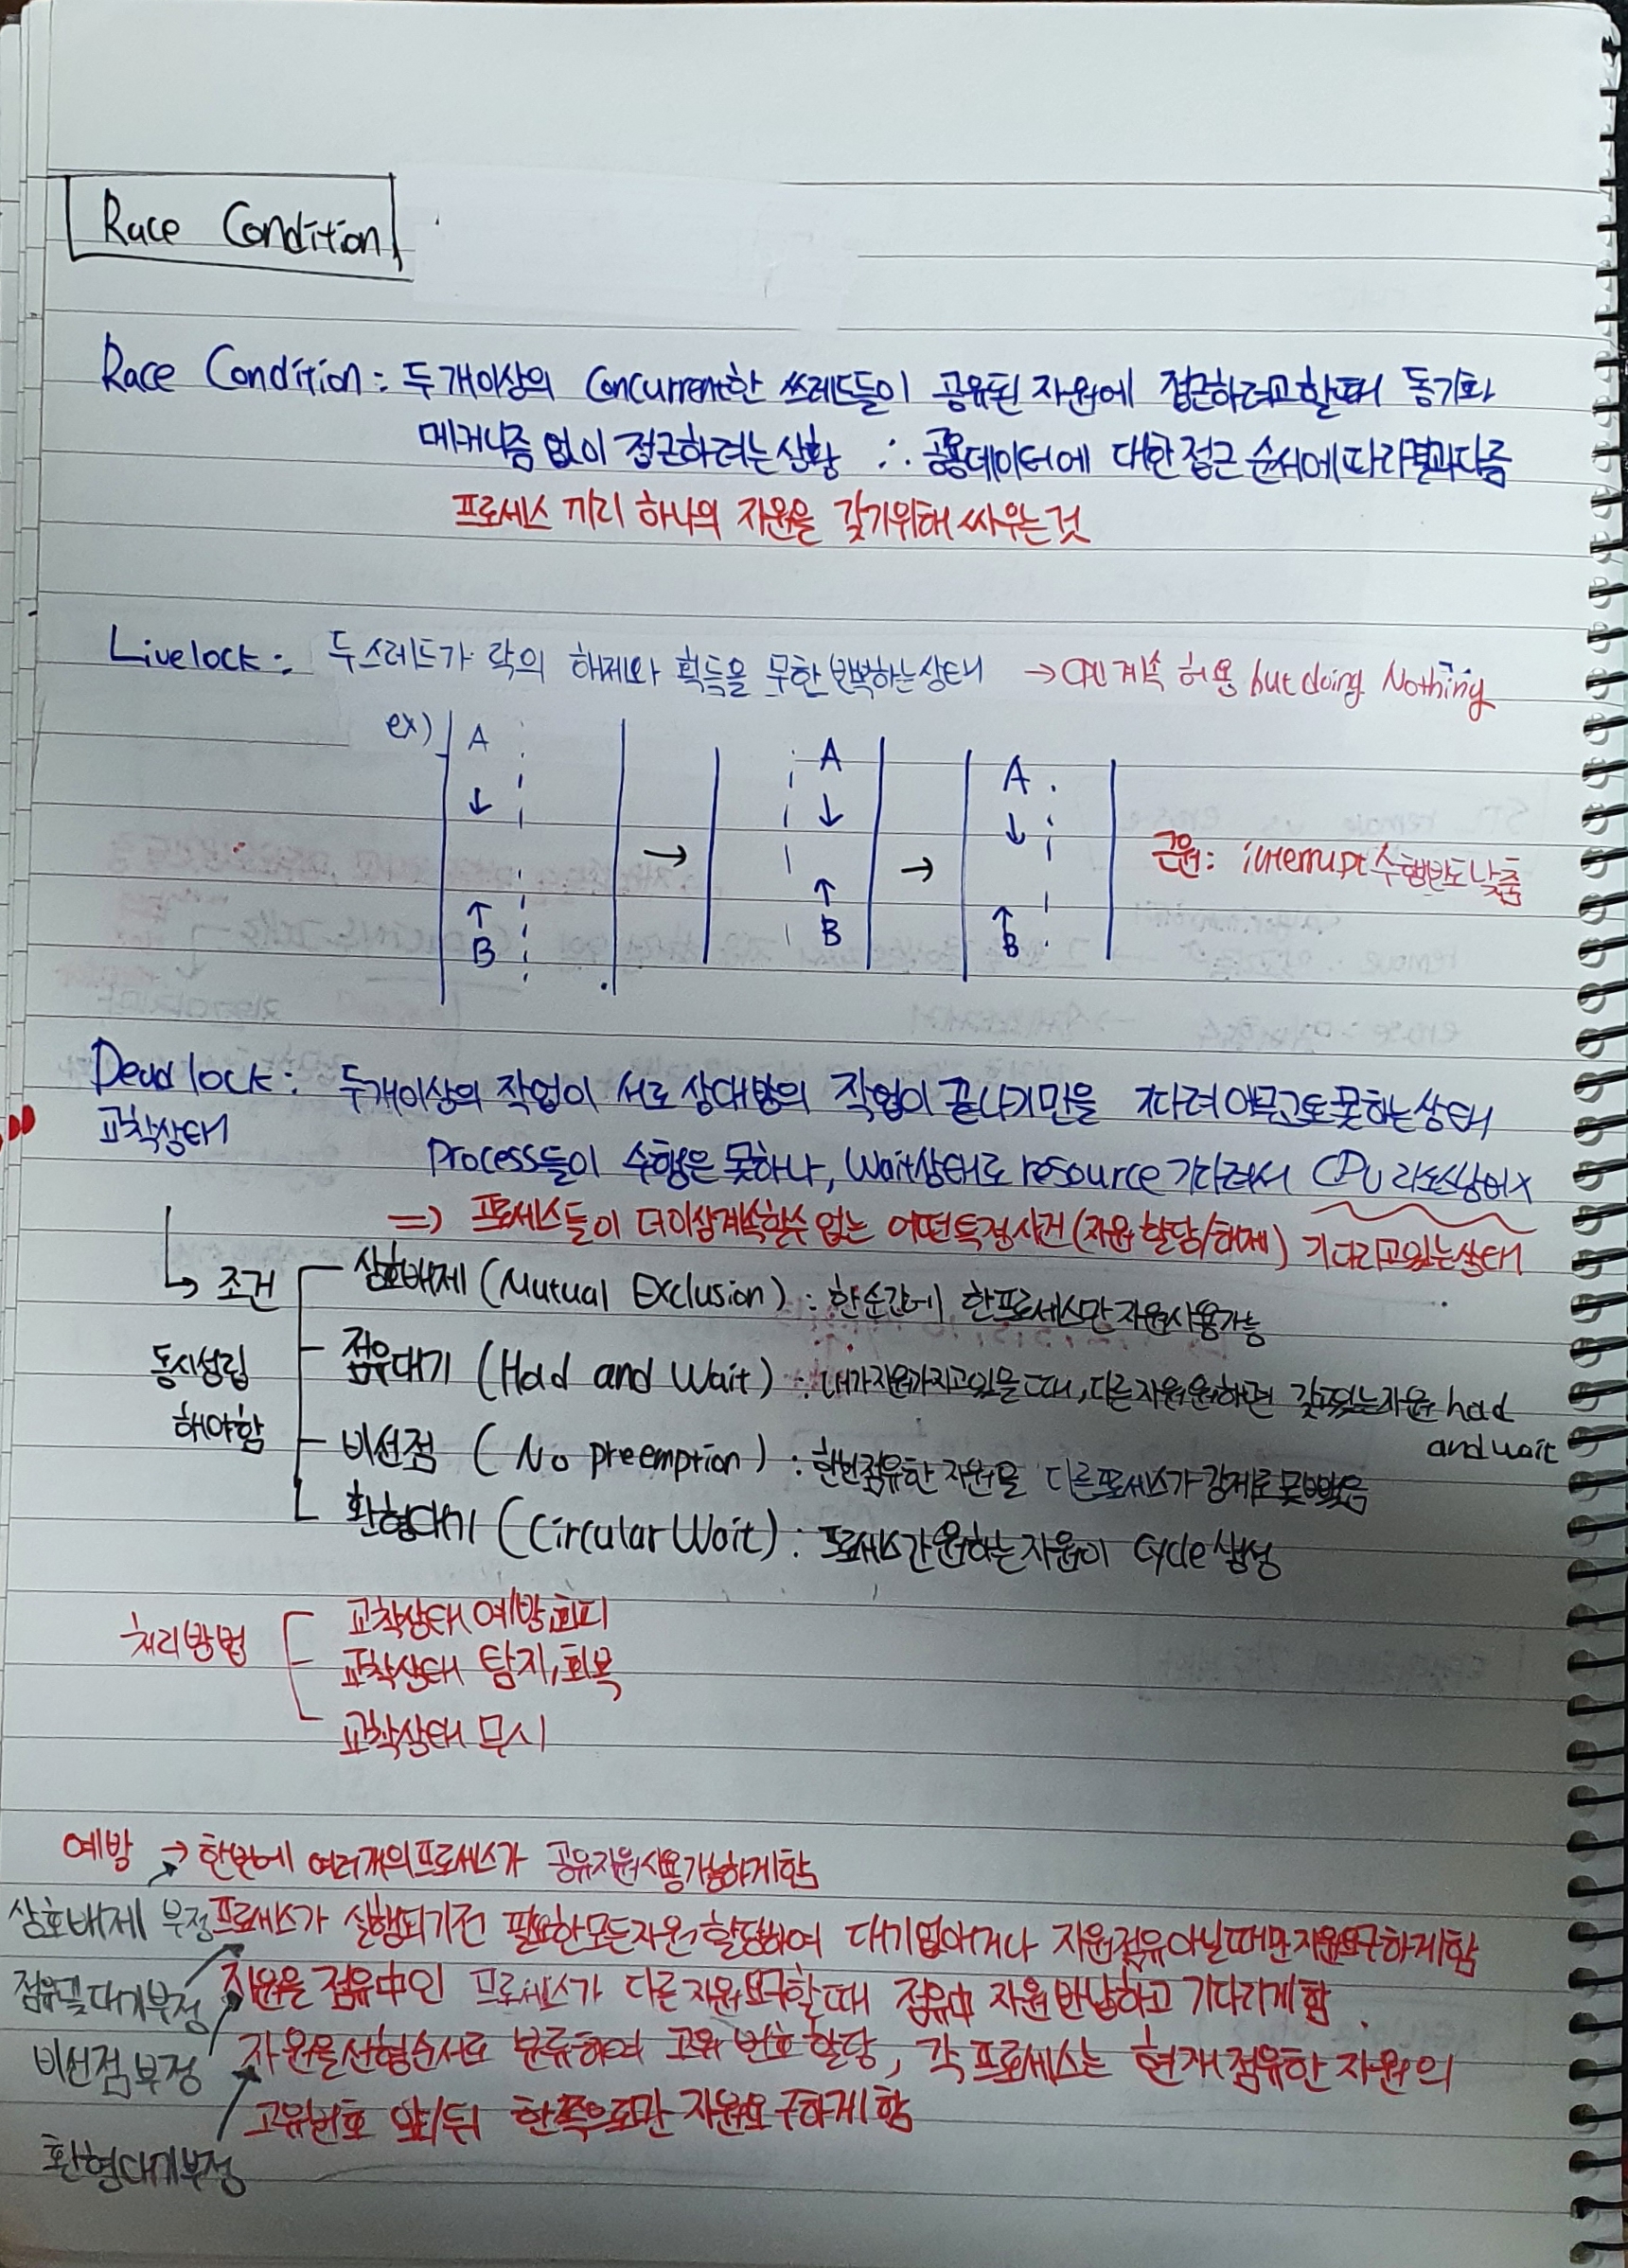 Race Condition
Race Condition : 두개이상의 Concurrent한 쓰레드들이 공유된 자원에 접근하려고 할때 동기화
메커니즘 없이 접근하려는 상황 ∴ 공용데이터에 대한 접근 순서에 따라 결과다름
프로세스 끼리 하나의 자원을 갖기위해 싸우는것
Livelock : 두스레드가 락의 해제와 획득을 무한 반복하는상태 → CPU 계속 허용 but doing Nothing
ex) A A A
근원: interrupt 수행빈도 낮춤
B B B
Dead lock : 두개이상의 작업이 서로 상대방의 작업이 끝나기만을 기다려 아무고토 못하는 상태
교착상태
Process들이 수행은 못하나, Wait상태로 resource 기다려서 CPU 리소스낭비X
⇒ 프로세스들이 더이상계속할수 없는 어떤특정사건(자원 할당/해제) 기다리고있는상태
↳ 조건 상호배제 (Mutual Exclusion) : 한순간에 한프로세스만 자원사용가능
동시성립 점유대기 (Hold and Wait) : 내가자원가지고있을때, 다른자원 원하면 갖고있는자원 hold
해야함 and wait
비선점 (No preemption) : 한번점유한 자원을 다른프로세스가 강제로못빼앗음
환형대기 (Circular Wait) : 프로세스간 원하는 자원이 Cycle 생성
처리방법 교착상태 예방, 회피
교착상태 탐지, 회복
교착상태 무시
예방 → 한번에 여러개의프로세스가 공유자원사용가능하게함
상호배제 부정 프로세스가 실행되기전 필요한모든자원 할당하여 대기없애거나 자원점유아닐때만 자원요구하게함
점유및대기부정 자원을 점유中인 프로세스가 다른 자원요구할때 점유中 자원 반납하고 기다리게함.
비선점부정 자원을 선형순서로 분류하여 고유 번호 할당, 각 프로세스는 현재 점유한 자원의
고유번호 앞/뒤 한쪽으로만 자원요구하게함
환형대기부정